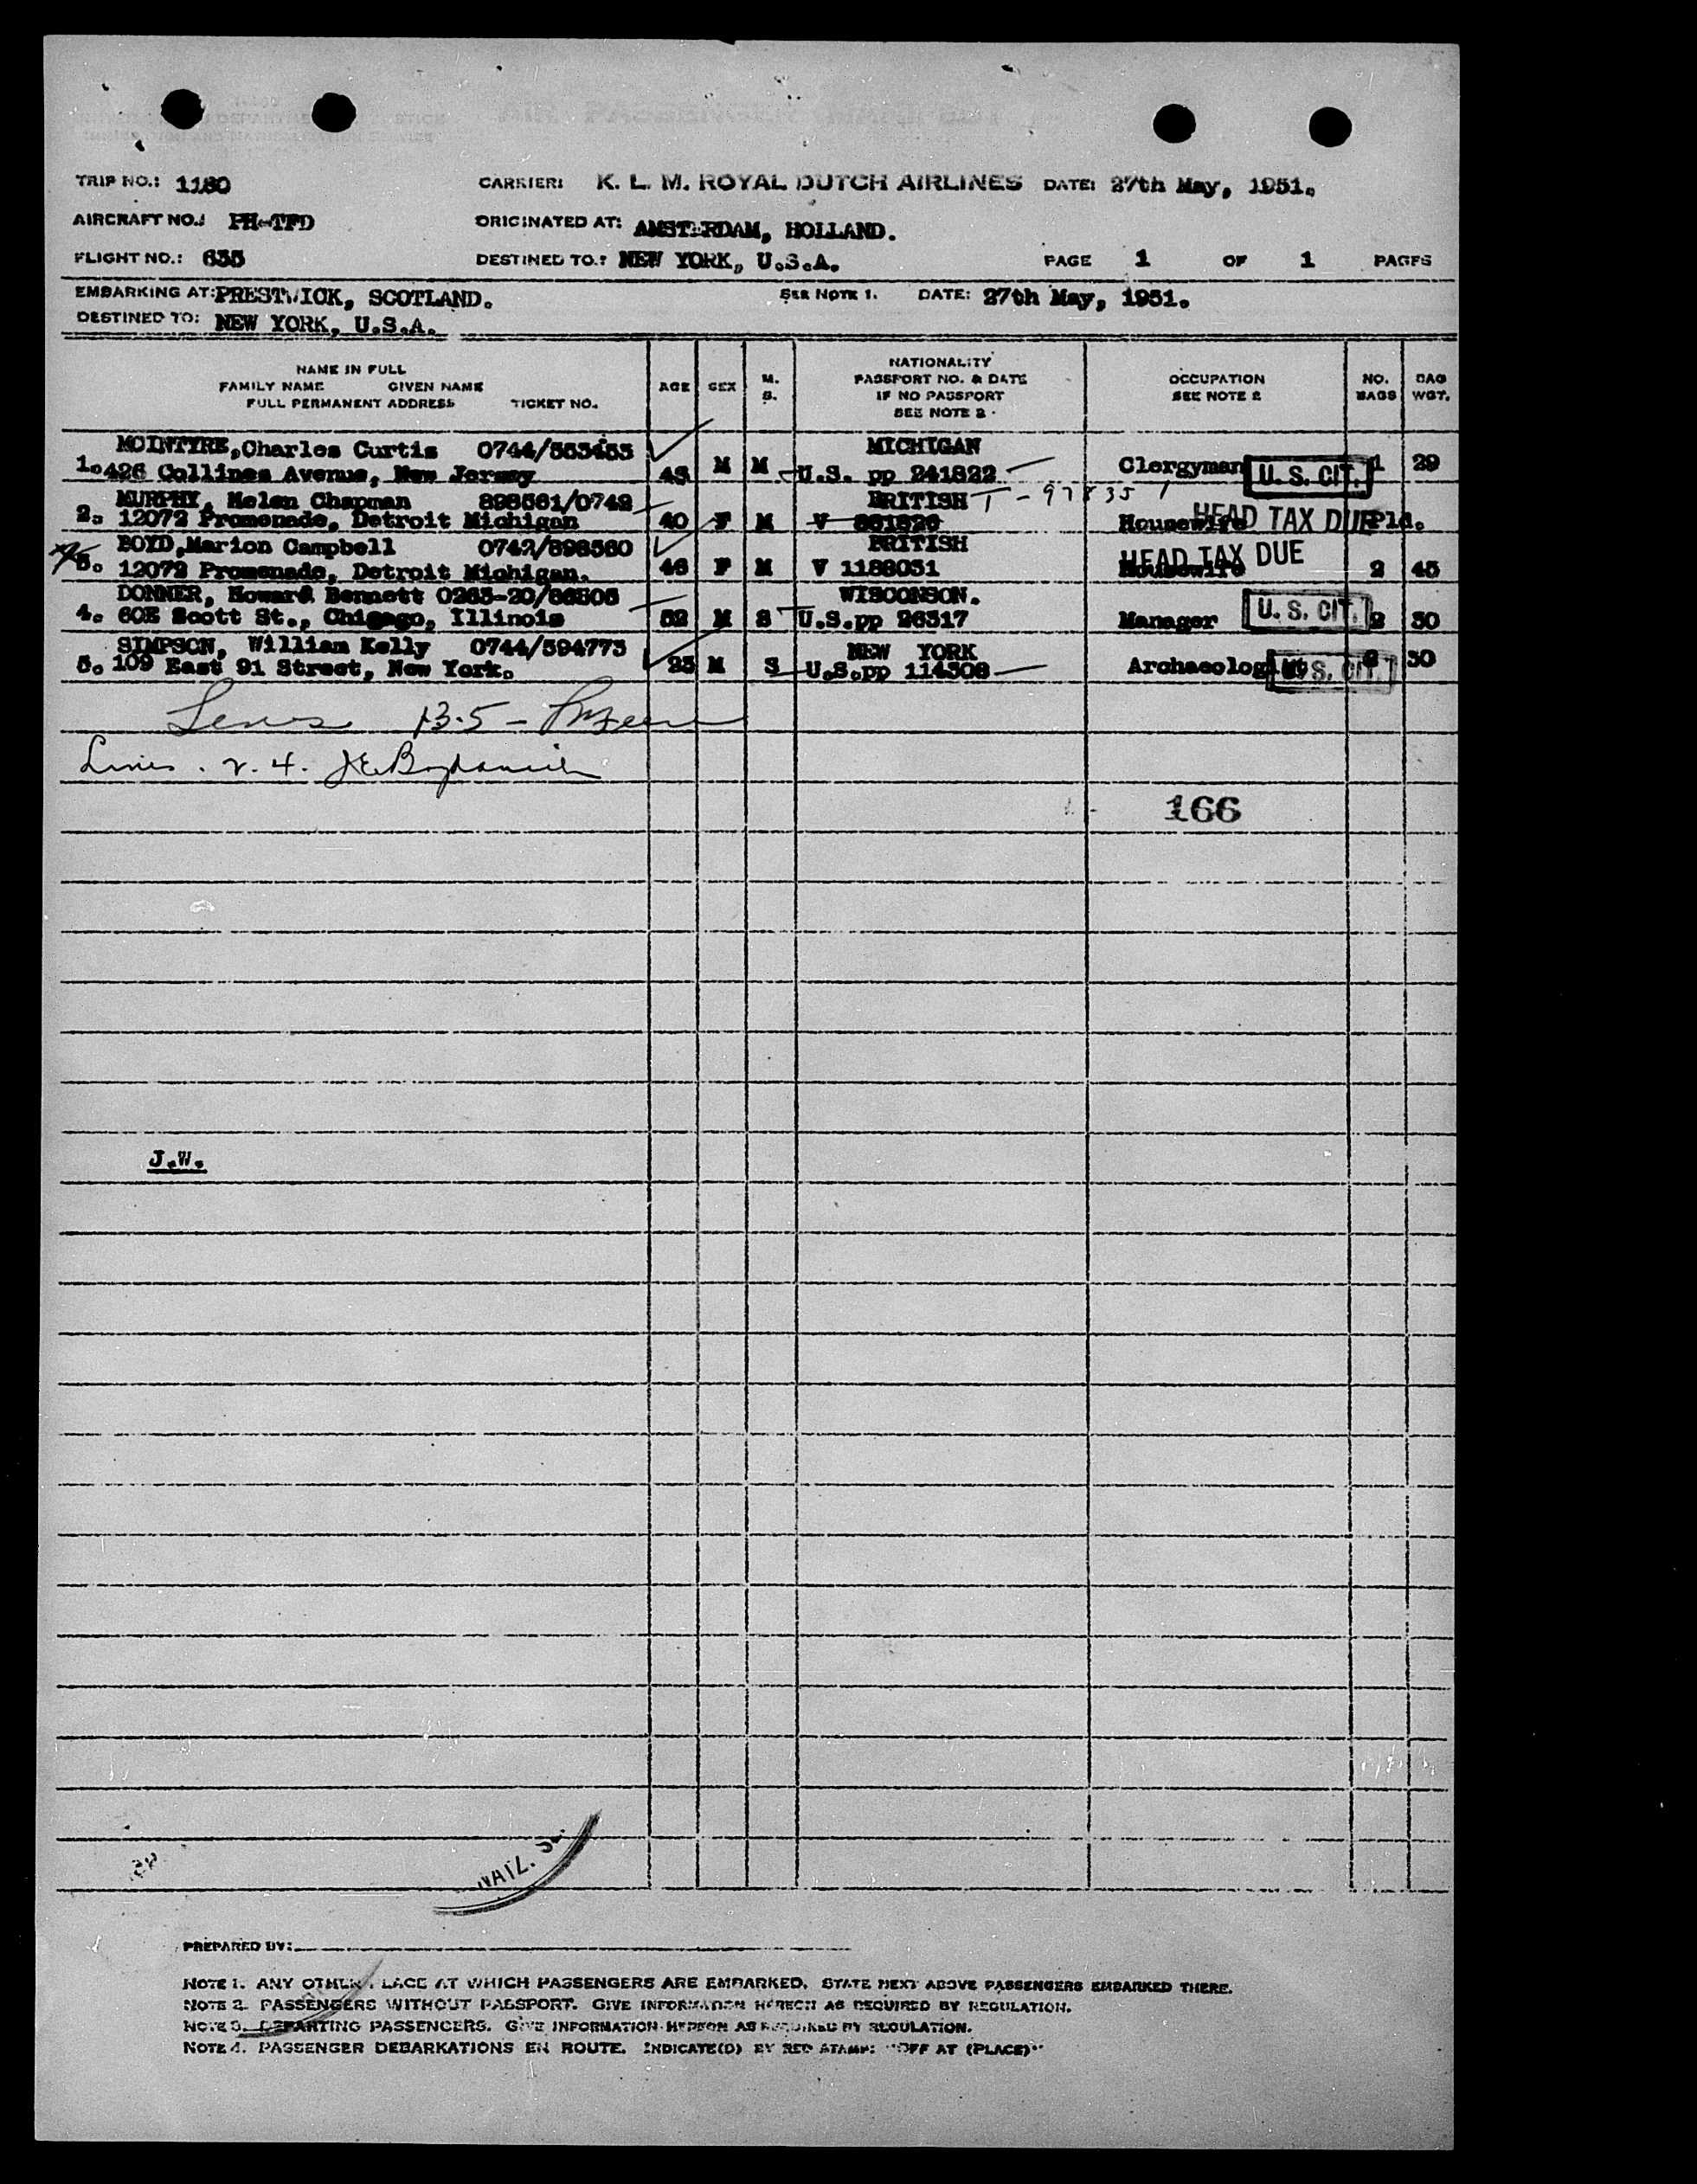 TRIP NO.: 1180 CARRIER: K. L. M. ROYAL DUTCH AIRLINES DATE: 27th May, 1951.
AIRCRAFT NO.: PH-TFD ORIGINATED AT: AMSTERDAM, HOLLAND.
FLIGHT NO.: 635 DESTINED TO.: NEW YORK, U.S.A. PAGE 1 OF 1 PAGES
EMBARKING AT: PRESTWICK, SCOTLAND. SEE NOTE 1. DATE: 27th May, 1951.
DESTINED TO: NEW YORK, U.S.A.
NAME IN FULL
FAMILY NAME GIVEN NAME
FULL PERMANENT ADDRESS TICKET NO.
AGE SEX M. S.
NATIONALITY
PASSPORT NO. & DATE
IF NO PASSPORT
SEE NOTE 2
OCCUPATION
SEE NOTE 2
NO. BAGS
BAG WGT.
MCINTYRE, Charles Curtis 0744/553453 MICHIGAN
1. 426 Collines Avenue, New Jersey 43 M M U.S. pp 241822 Clergyman U. S. CIT. 1 29
MURPHY, Helen Chapman 898561/0742 BRITISH T-978351
2. 12072 Promenade, Detroit Michigan 40 F M V 861826 Housewife HEAD TAX DUE Pld.
BOYD, Marion Campbell 0742/898560 BRITISH
3. 12072 Promenade, Detroit Michigan. 46 F M V 1188031 Housewife HEAD TAX DUE 2 45
DONNER, Howard Bennett 0263-20/86505 WISCONSON.
4. 60E Scott St., Chigago, Illinois 52 M S U.S.pp 26317 Manager U. S. CIT. 2 30
SIMPSON, William Kelly 0744/594773 NEW YORK
5. 109 East 91 Street, New York. 23 M S U.S.pp 114308 Archaeologist U. S. CIT. 30
13.5 -
Lines . 2. 4.
166
J.W.
NATZ.
PREPARED BY:
NOTE 1. ANY OTHER PLACE AT WHICH PASSENGERS ARE EMBARKED. STATE NEXT ABOVE PASSENGERS EMBARKED THERE.
NOTE 2. PASSENGERS WITHOUT PASSPORT. GIVE INFORMATION HEREON AS REQUIRED BY REGULATION.
NOTE 3. DEPARTING PASSENGERS. GIVE INFORMATION HEREON AS REQUIRED BY REGULATION.
NOTE 4. PASSENGER DEBARKATIONS EN ROUTE. INDICATE(D) BY RED STAMP: "OFF AT (PLACE)"